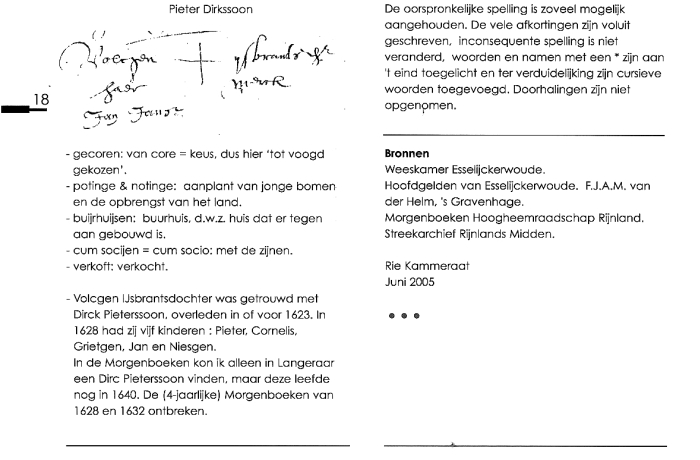 Pieter Dirkssoon
Volcgen ijsbrants
haer merck
Jan Jansz
18
- gecoren: van core = keus, dus hier 'tot voogd
gekozen'.
- potinge & notinge: aanplant van jonge bomen
en de opbrengst van het land.
- buijrhuijsen: buurhuis, d.w.z. huis dat er tegen
aan gebouwd is.
- cum socijen = cum socio: met de zijnen.
- verkoft: verkocht.
- Volcgen IJsbrantsdochter was getrouwd met
Dirck Pieterssoon, overleden in of voor 1623. In
1628 had zij vijf kinderen : Pieter, Cornelis,
Grietgen, Jan en Niesgen.
In de Morgenboeken kon ik alleen in Langeraar
een Dirc Pieterssoon vinden, maar deze leefde
nog in 1640. De (4-jaarlijke) Morgenboeken van
1628 en 1632 ontbreken.
De oorspronkelijke spelling is zoveel mogelijk
aangehouden. De vele afkortingen zijn voluit
geschreven, inconsequente spelling is niet
veranderd, woorden en namen met een * zijn aan
't eind toegelicht en ter verduidelijking zijn cursieve
woorden toegevoegd. Doorhalingen zijn niet
opgenomen.
Bronnen
Weeskamer Esselijckerwoude.
Hoofdgelden van Esselijckerwoude. F.J.A.M. van
der Helm, 's Gravenhage.
Morgenboeken Hoogheemraadschap Rijnland.
Streekarchief Rijnlands Midden.
Rie Kammeraat
Juni 2005